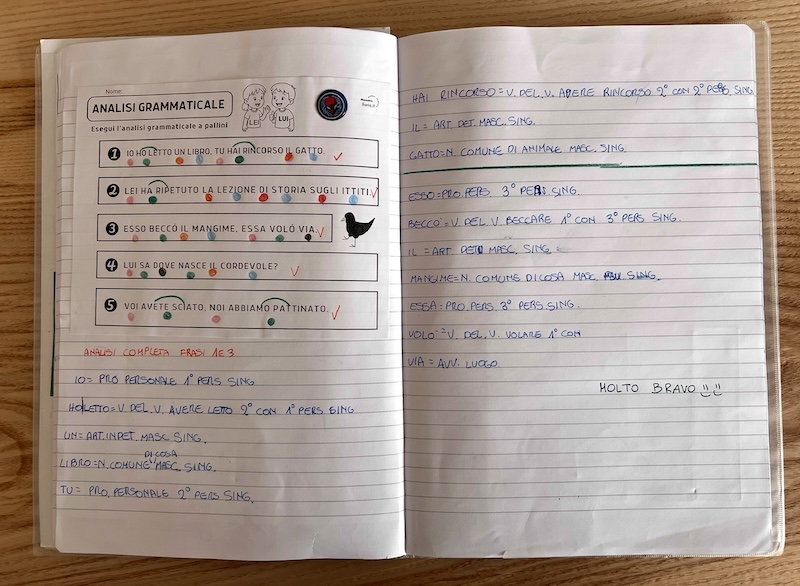 Nome:
ANALISI GRAMMATICALE
Esegui l'analisi grammaticale a pallini
LEI
LUI
1 IO HO LETTO UN LIBRO, TU HAI RINCORSO IL GATTO.
2 LEI HA RIPETUTO LA LEZIONE DI STORIA SUGLI ITTITI.
3 ESSO BECCÓ IL MANGIME, ESSA VOLÓ VIA.
4 LUI SA DOVE NASCE IL CORDEVOLE?
5 VOI AVETE SCIATO, NOI ABBIAMO PATTINATO.
ANALISI COMPLETA FRASI 1 E 3
IO = PRO PERSONALE 1° PERS SING
HO LETTO = V. DEL V. AVERE LETO 2° CON 1° PERS SING
UN = ART. INDET. MASC SING.
DI COSA
LIBRO = N. COMUNE MASC. SING.
TU = PRO. PERSONALE 2° PERS SING.
HAI RINCORSO = V. DEL. V. AVERE RINCORSO 2° CON 2° PERS SING
IL = ART. DET. MASC. SING.
GATTO = N. COMUNE DI ANIMALE MASC SING.
ESSO = PRO. PERS 3° PERS. SING.
BECCÒ = V. DEL V. BECCARE 1° CON 3° PERS SING.
IL = ART DET MASC. SING.
MANGIME = N. COMUNE DI COSA MASC SING.
ESSA = PRO. PERS. 3° PERS. SING.
VOLO' = V. DEL. V. VOLARE 1° CON
VIA = AVV. LUOGO
MOLTO BRAVO